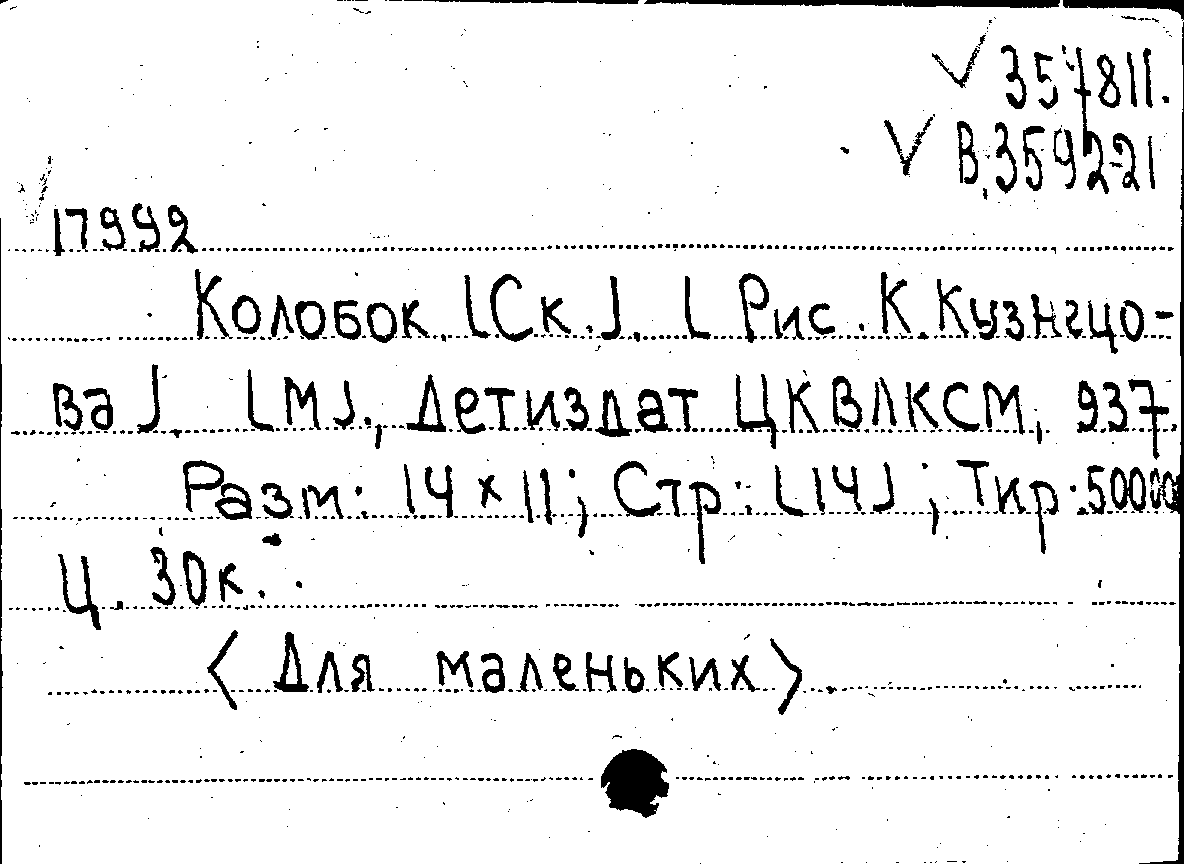 √ 357811.
√ В.359221
√ 17992
Колобок. [Ск.]. [Рис. К. Кузнецо-
ва]. [М]., Детиздат ЦКВЛКСМ, 937.
Разм: 14 x 11; Стр: [14]; Тир: 50000
Ц. 30к.
< Для маленьких >.